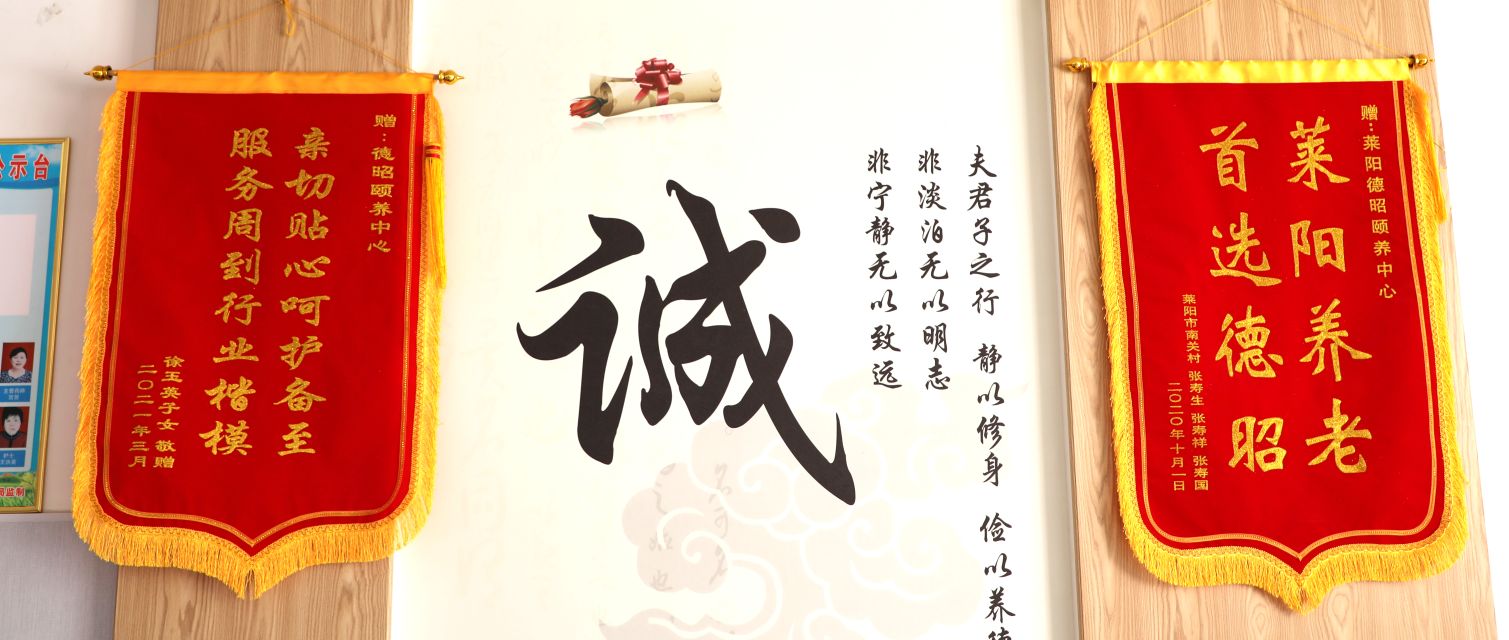 公示台
局监制
护士
赠：德昭颐养中心
亲切贴心呵护备至
服务周到行业楷模
徐玉英子女 敬赠
二〇二一年三月
诚
夫君子之行 静以修身 俭以养德
非淡泊无以明志
非宁静无以致远
赠：莱阳德昭颐养中心
莱阳养老
首选德昭
莱阳市南关村 张寿生 张寿祥 张寿国
二〇二〇年十月一日